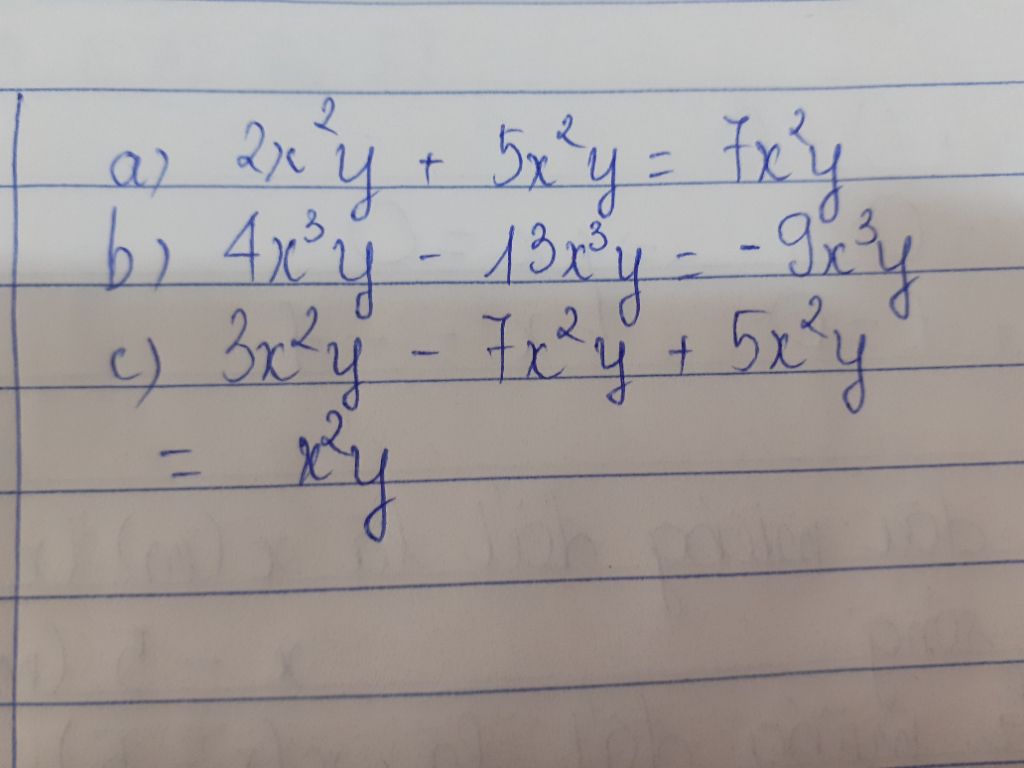 a) 2x²y + 5x²y = 7x²y
b) 4x³y - 13x³y = -9x³y
c) 3x²y - 7x²y + 5x²y
= x²y